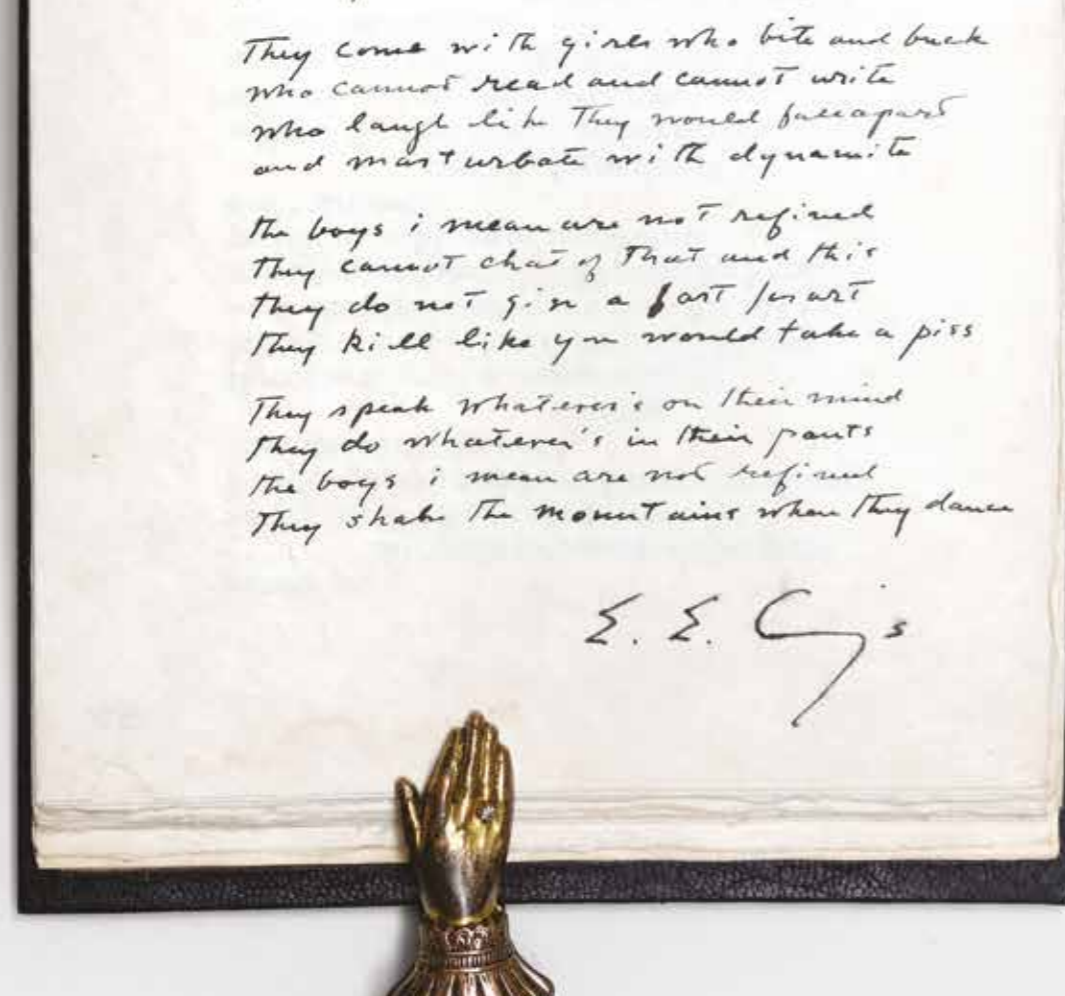 They come with girls who bite and buck
who cannot read and cannot write
who laugh like they would fall apart
and masturbate with dynamite
the boys i mean are not refined
they cannot chat of that and this
they do not give a fart for art
they kill like you would take a piss
They speak whatever's on their mind
they do whatever's in their pants
the boys i mean are not refined
they shake the mountains when they dance
E. E. Cummings